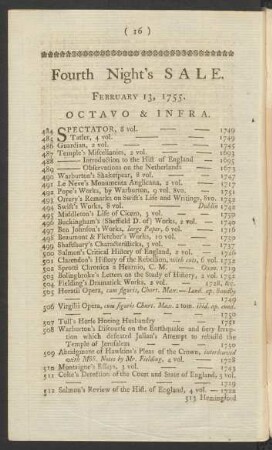 ( 16 )
Fourth Night's SALE.
FEBRUARY 13, 1755.
OCTAVO & INFRA.
484 SPECTATOR, 8 vol. — — 1749
485 Tatler, 4 vol. — — 1749
486 Guardian, 2 vol. — — 1745
487 Temple's Miscellanies, 2 vol. — — 1693
488 —— Introduction to the Hist of England 1695
489 —— Observations on the Netherlands 1673
490 Warburton's Shakespear, 8 vol. — 1747
491 Le Neve's Monumenta Anglicana, 2 vol. — 1717
492 Pope's Works, by Warburton, 9 vol. 8vo. — 1751
493 Orrery's Remarks on Swift's Life and Writings, 8vo. 1752
494 Swift's Works, 8 vol. — Dublin 1742
495 Middleton's Life of Cicero, 3 vol. — 1741
496 Buckingham's (Sheffield D. of) Works, 2 vol. — 1740
497 Ben Johnson's Works, large Paper, 6 vol. — 1716
498 Beaumont & Fletcher's Works, 10 vol. — 1750
499 Shaftsbury's Characteristicks, 3 vol. — 1737
500 Salmon's Critical History of England, 2 vol. — 1720
501 Clarendon's History of the Rebellion, with cuts, 6 vol. 1731
502 Sprotti Chronica a Hearnio, C. M. Oxon 1719
503 Bolingbroke's Letters on the Study of History, 2 vol. 1752
504 Fielding's Dramatick Works, 2 vol. — 1728, &c.
505 Horatii Opera, cum figuris, Chart. Max. — Lond. ap. Sandby
— — 1749
506 Virgilii Opera, cum figuris Chart. Max. 2 tom. ibid. ap. eund.
— — 1750
507 Tull's Horse Hoeing Husbandry — 1751
508 Warburton's Discourse on the Earthquake and fiery Eruption
which defeated Julian's Attempt to rebuild the
Temple of Jerusalem — — 1750
509 Abridgment of Hawkins's Pleas of the Crown, interleaved
with MSS. Notes by Mr. Fielding, 2 vol. — 1728
510 Montaigne's Essays, 3 vol. — 1743
511 Coke's Detection of the Court and State of England, 3 vol.
— — 1719
512 Salmon's Review of the Hist. of England, 4 vol. — 1724
513 Hemingford